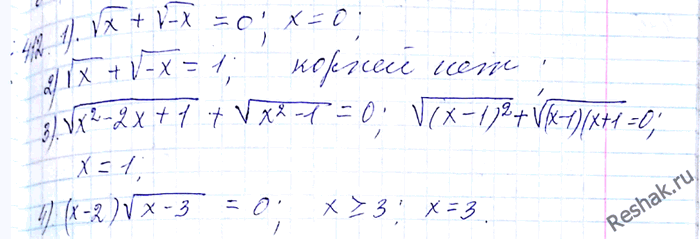 412. 1). √x + √-x = 0; x = 0;
2) √x + √-x = 1; корней нет;
3). √x²-2x+1 + √x²-1 = 0; √(x-1)² + √(x-1)(x+1 = 0;
x = 1;
4) (x-2)√x-3 = 0; x ≥ 3; x = 3.
Reshak.ru